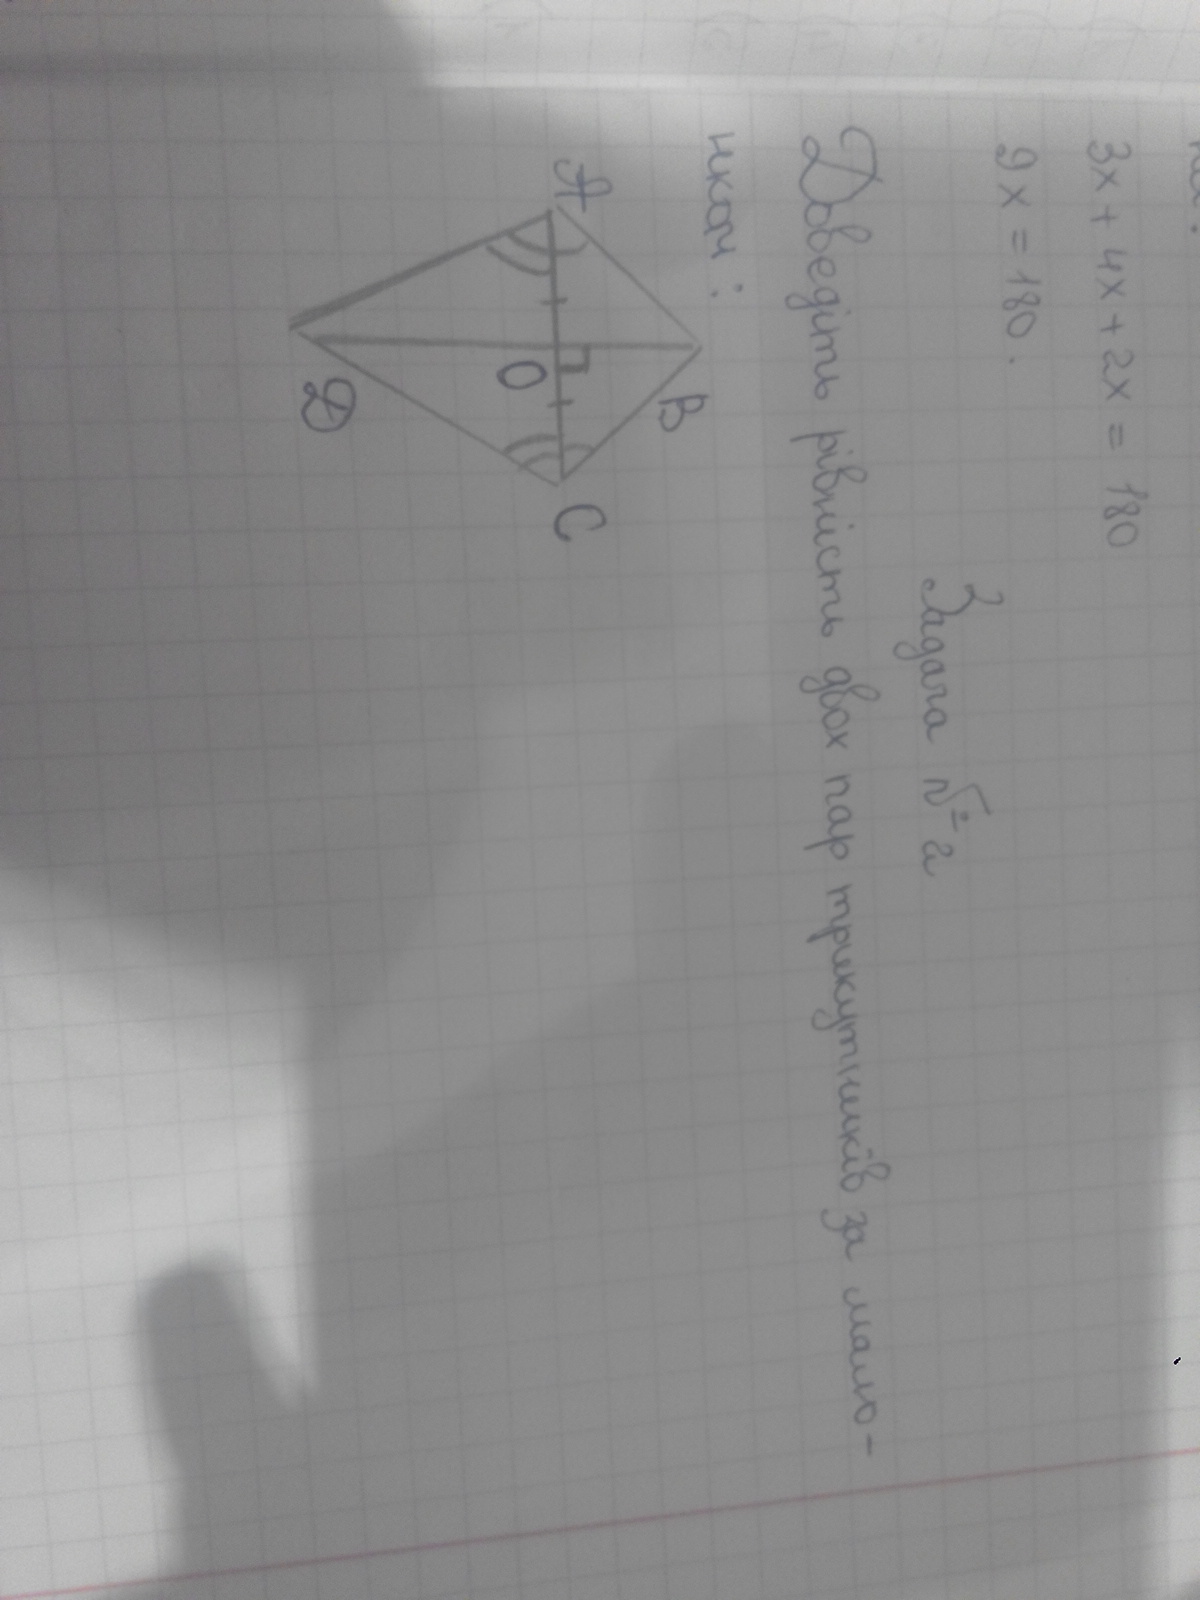 3x + 4x + 2x = 180
9x = 180.
Задача №2
Доведіть рівність двох пар трикутників за малю-
нком:
A
B
O
C
D